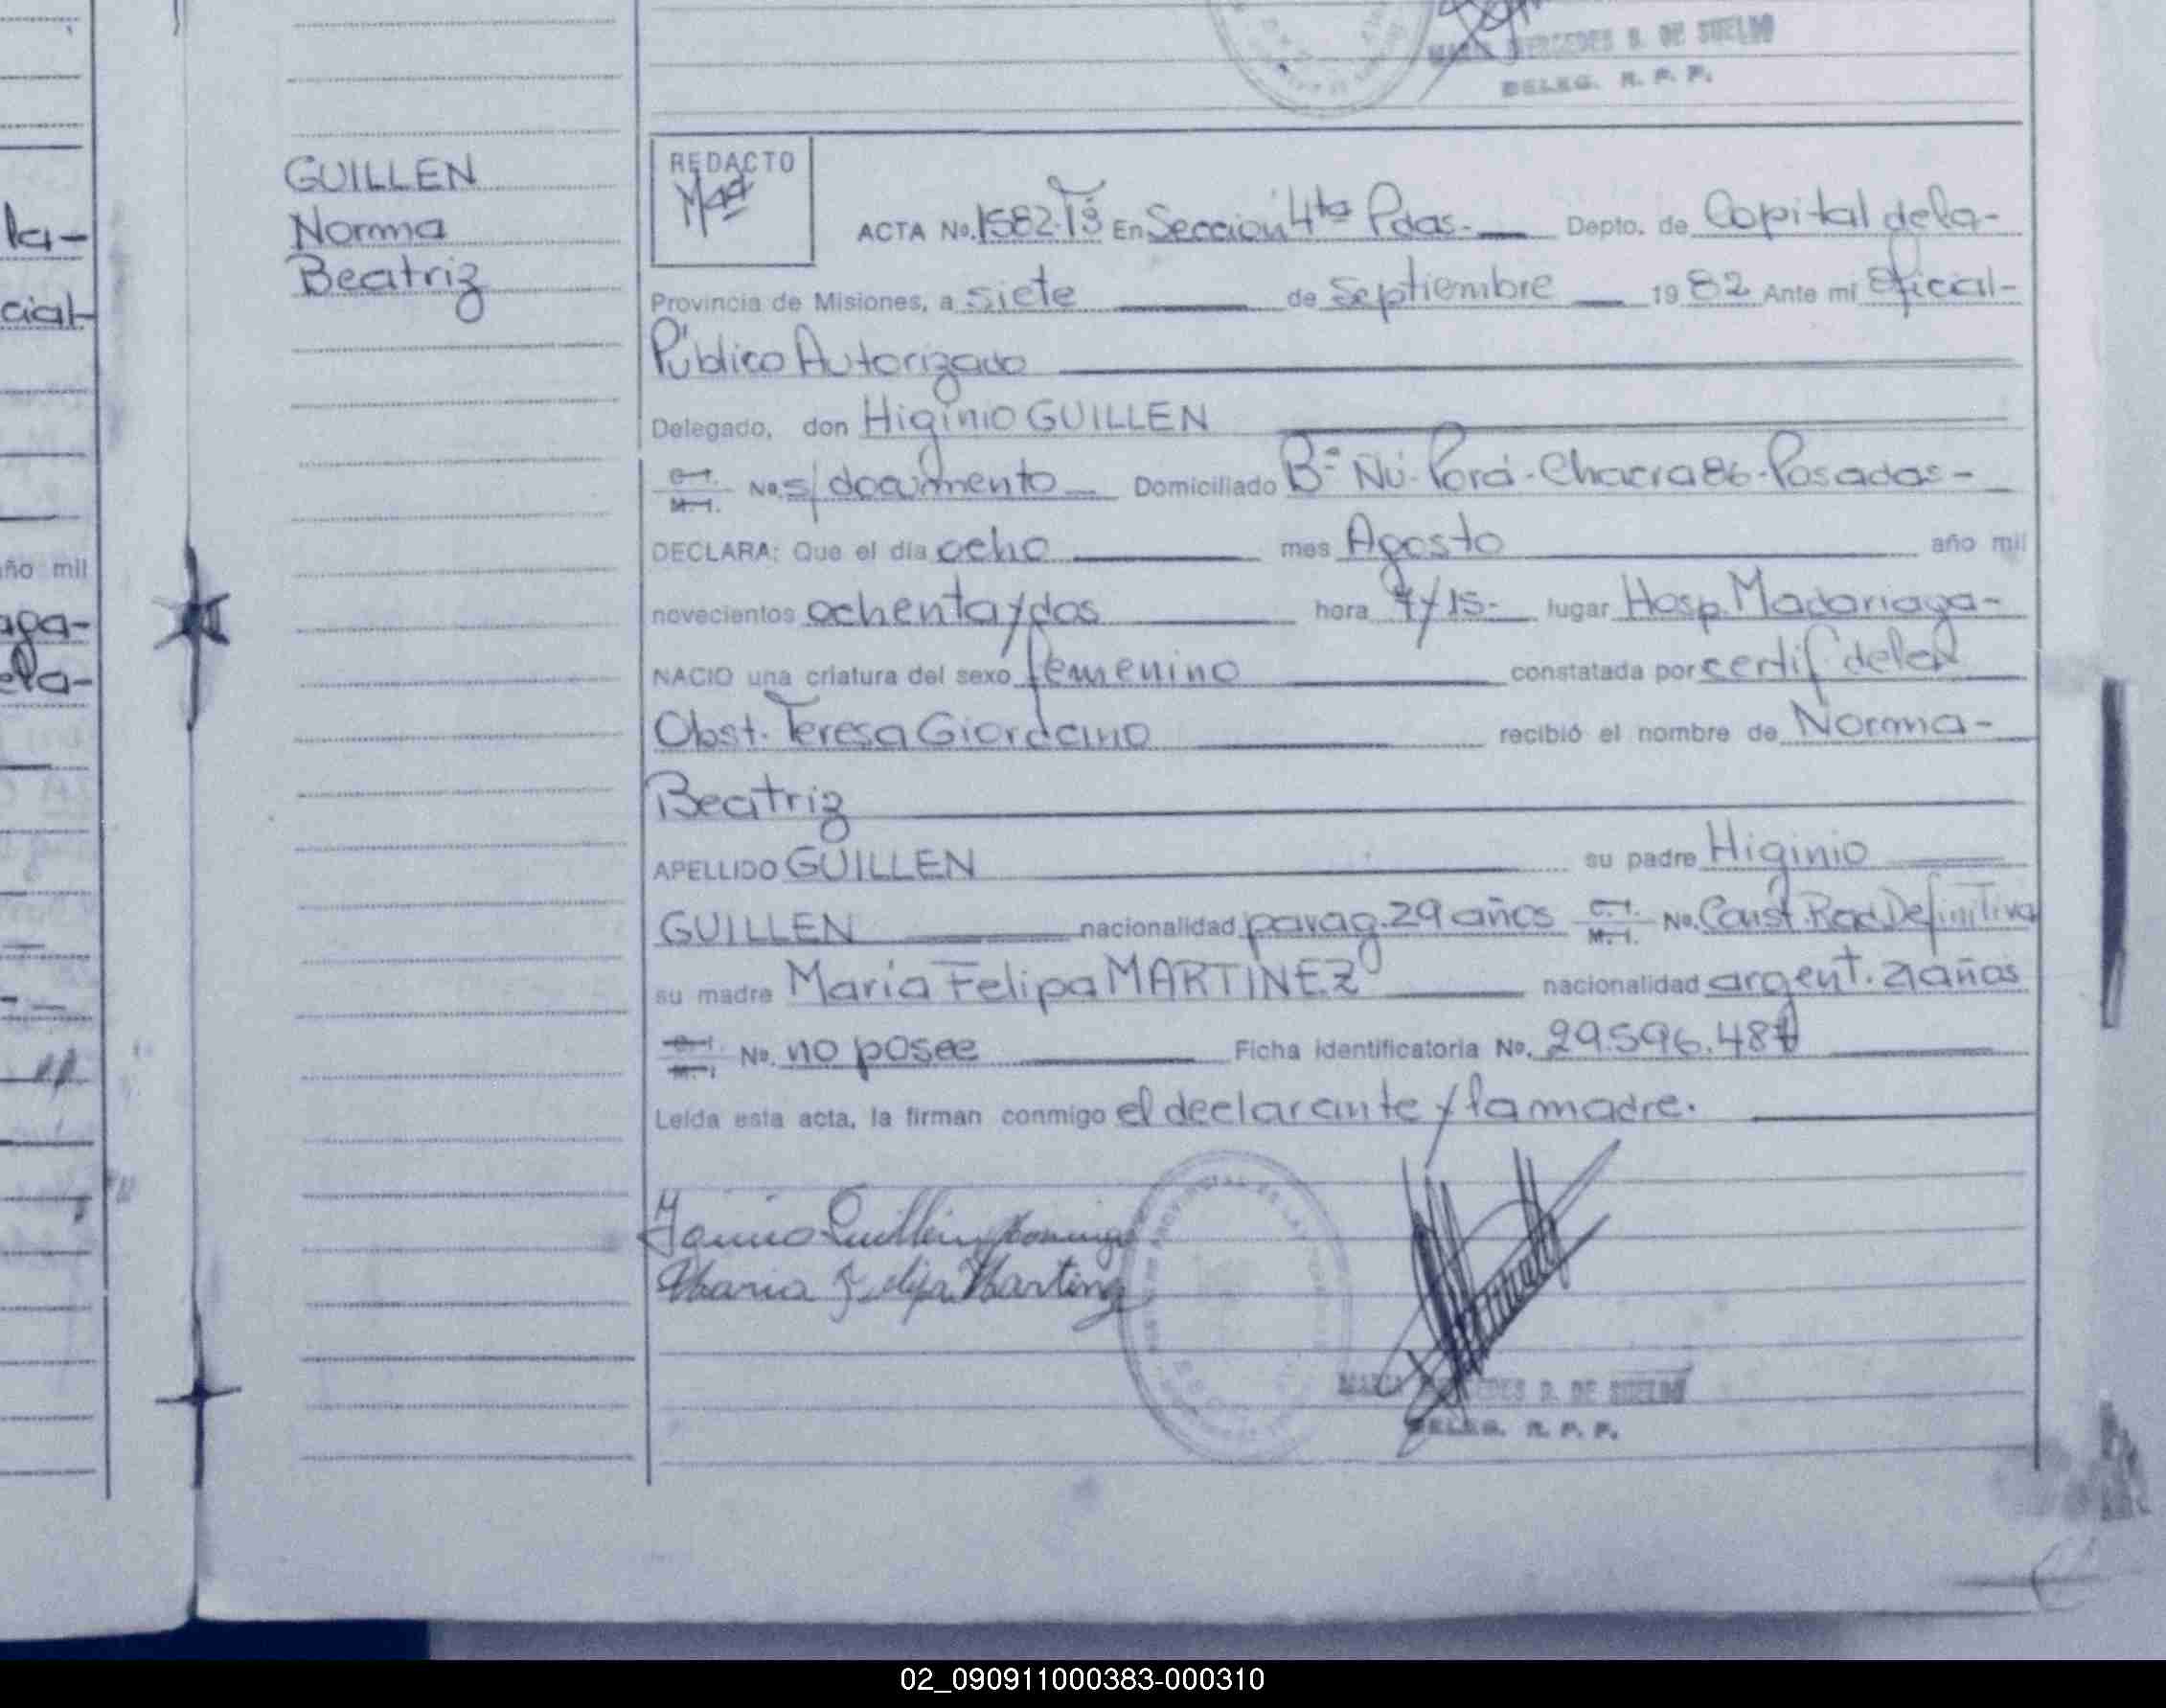 MARIA MERCEDES B. DE SUELDO
DELEG. R. P. P.
GUILLEN
Norma
Beatriz
la-
cial-
ño mil
aga-
ela-
REDACTO
ACTA No. 1582-Tº En Seccion 4ta Pdas.- Depto. de Capital de la-
Provincia de Misiones, a siete de Septiembre 1982 Ante mi Oficial-
Público Autorizado
Delegado, don Higinio GUILLEN
C.I. M.I. No. s/documento Domiciliado Bº Ñú-Porá-Chacra 86-Posadas-
DECLARA: Que el día ocho mes Agosto año mil
novecientos ochenta y dos hora 7y15- lugar Hosp. Madariaga-
NACIO una criatura del sexo femenino constatada por certif de la
Obst. Teresa Giordano recibió el nombre de Norma-
Beatriz
APELLIDO GUILLEN su padre Higinio
GUILLEN nacionalidad parag. 29 años C.I. M.I. No. Const. Rad Definitiva
su madre María Felipa MARTINEZ nacionalidad argent. 21 años
C.I. M.I. No. no posee Ficha identificatoria No. 29.596.48
Leída esta acta, la firman conmigo el declarante y la madre.
Guillen
Maria Felipa Martinez
MARIA MERCEDES B. DE SUELDO
DELEG. R. P. P.
02_090911000383-000310